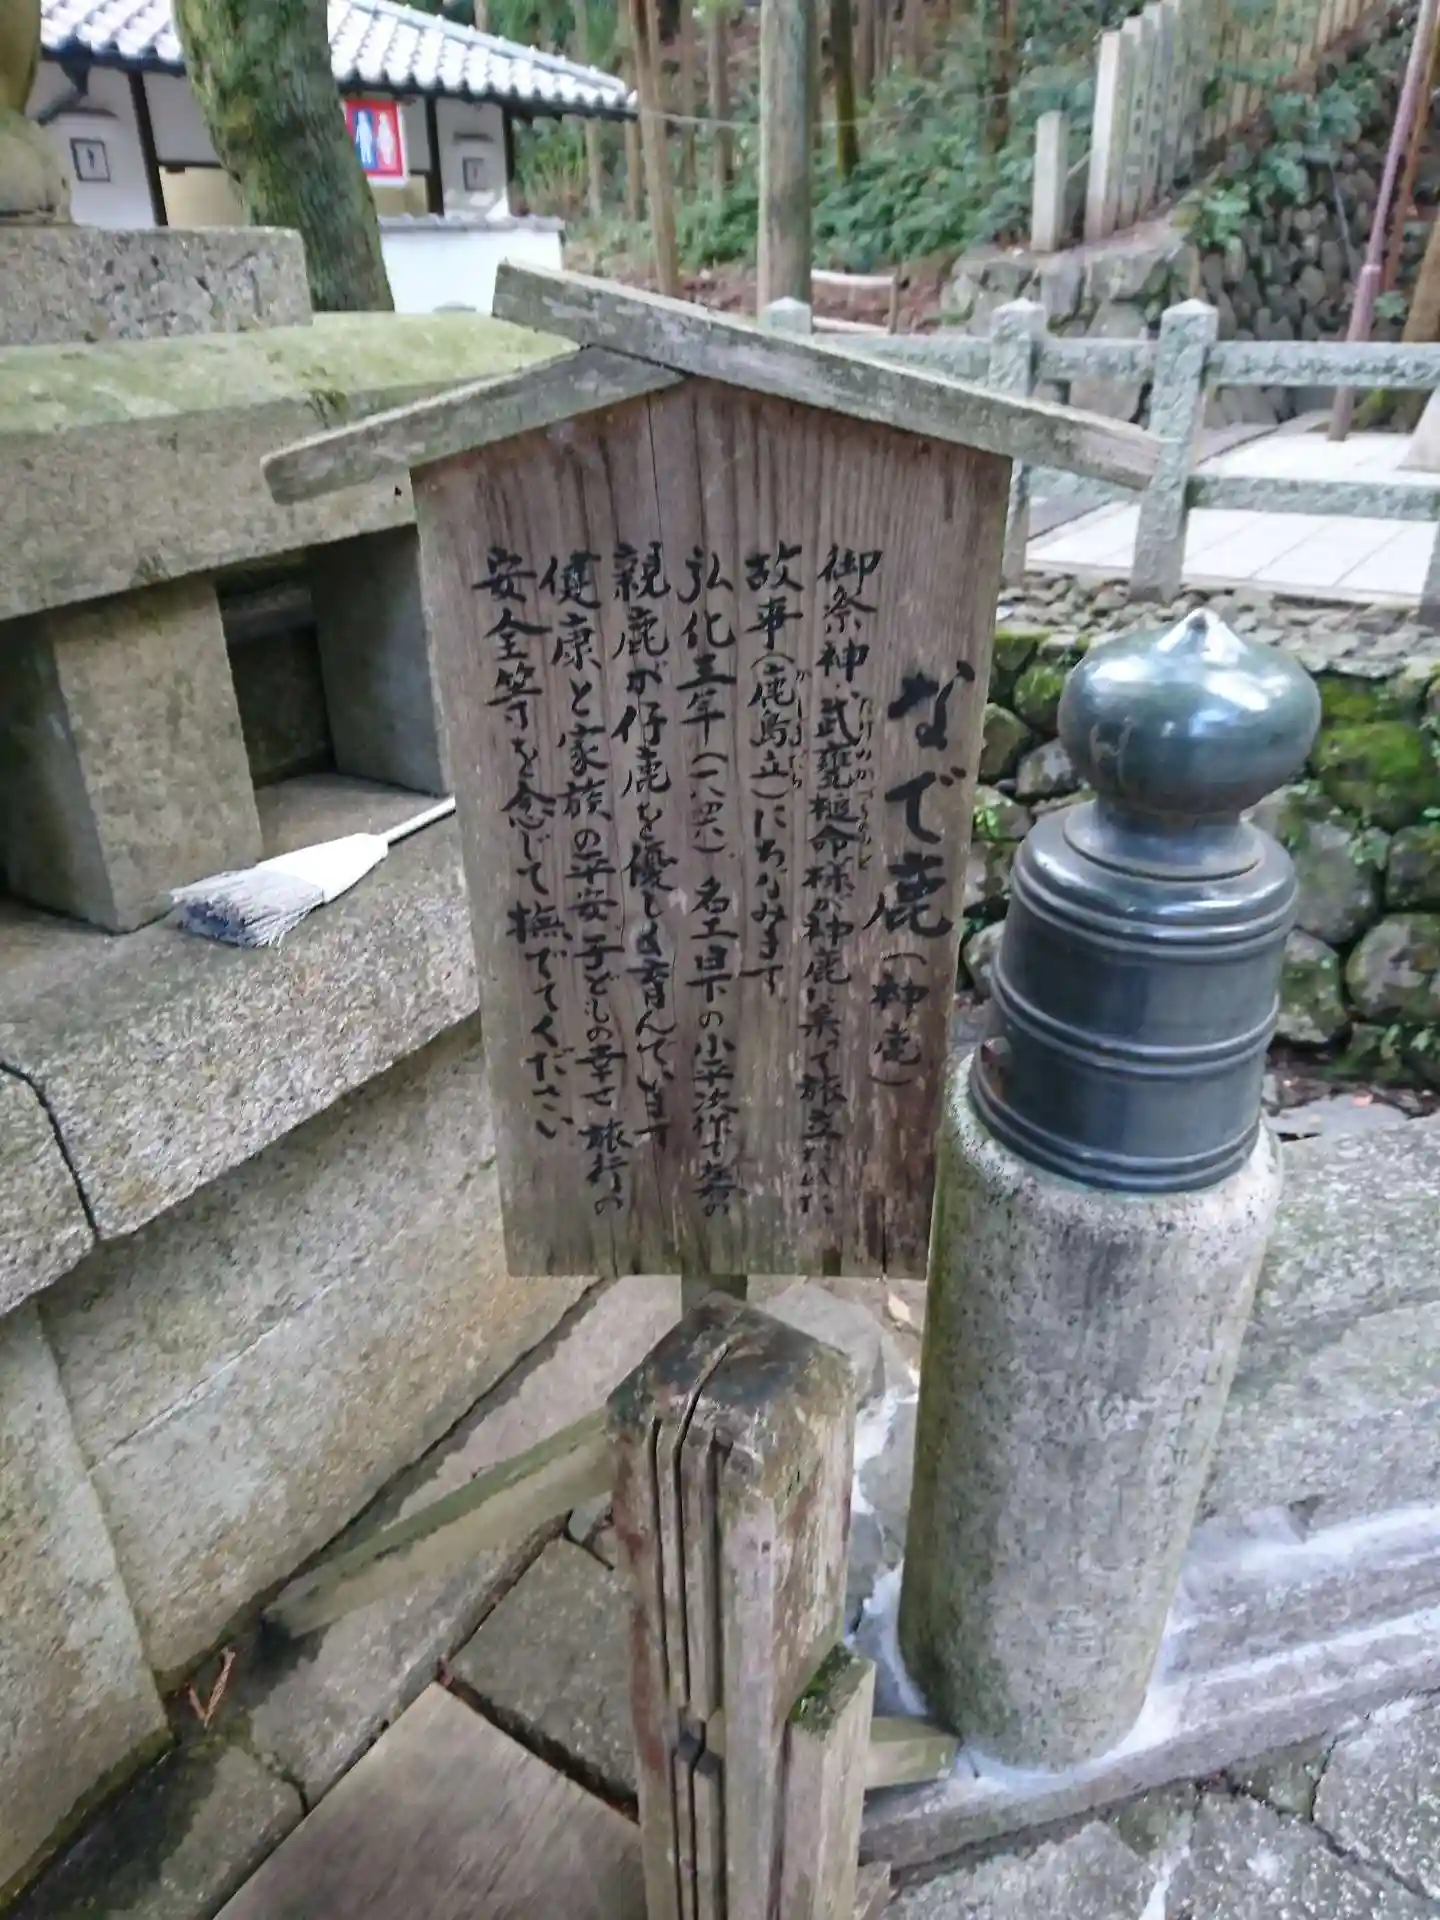 なで鹿(神鹿)
御祭神・武甕槌命様が神鹿に乗って旅立たれた
たけみかづちのみこと
故事(鹿島立)にちなみます
かしまだち
弘化三年(一八四六)名工日下の小平次作で
親鹿が仔鹿を優しく育んでいます
健康と家族の平安子どもの幸せ旅行の
安全等を念じて撫でてください